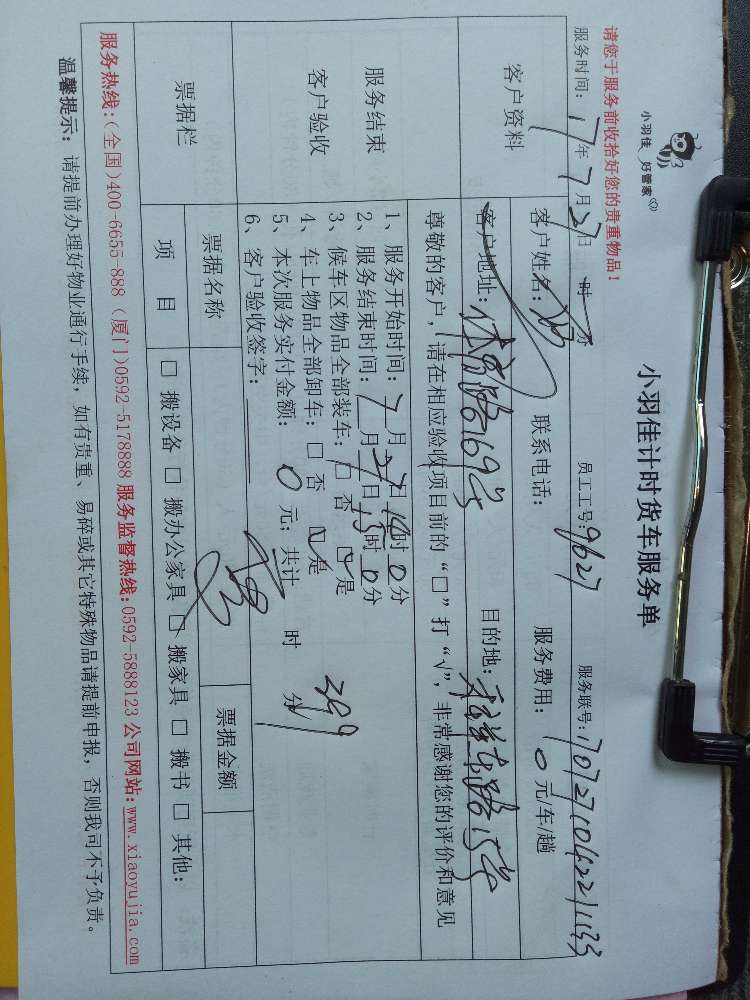 小羽佳 好管家
小羽佳计时货车服务单
请您于服务前收拾好您的贵重物品！
服务时间：17年7月27日 时 分 员工工号：9627 服务联号：70727104221133
客户资料
客户姓名： 联系电话： 服务费用：0元/车/趟
客户地址：体育路169号 目的地：吕岭东路15号
服务结束
客户验收
尊敬的客户，请在相应验收项目前的“□”打“√”，非常感谢您的评价和意见
1、服务开始时间：7月27日14时0分
2、服务结束时间：7月27日15时0分
3、候车区物品全部装车：□ 否 ☑ 是
4、车上物品全部卸车：□ 否 ☑ 是 399
5、本次服务实付金额：0元；共计 时 分
6、客户验收签字：
票据栏
票据名称 票据金额
项 目 □ 搬设备 □ 搬办公家具 ☑ 搬家具 □ 搬书 □ 其他：
服务热线：(全国)400-6655-888 (厦门)0592-5178888 服务监督热线：0592-5888123 公司网站：www.xiaoyujia.com
温馨提示：请提前办理好物业通行手续，如有贵重、易碎或其它特殊物品请提前申报，否则我司不予负责。